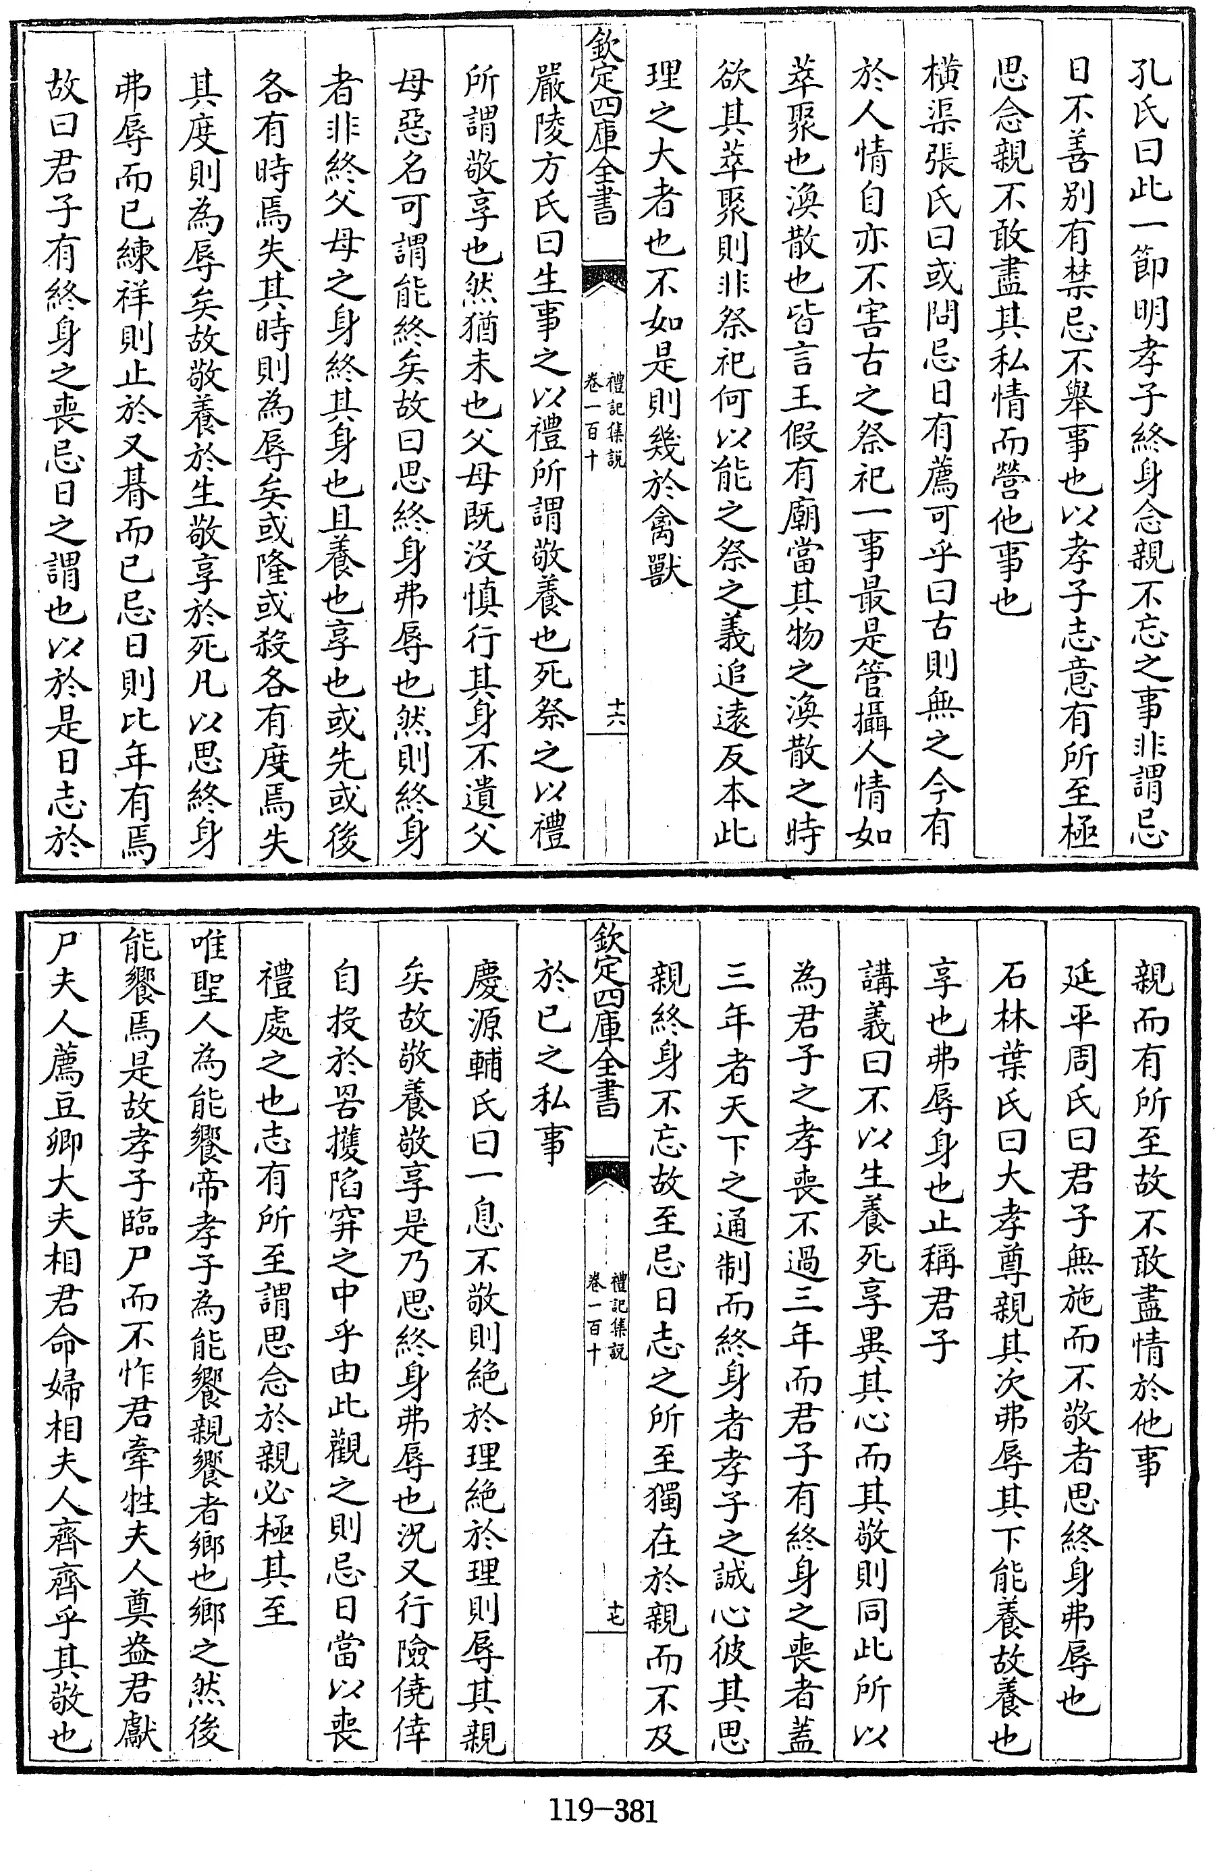 孔氏曰此一節明孝子終身念親不忘之事非謂忌
日不善別有禁忌不舉事也以孝子志意有所至極
思念親不敢盡其私情而營他事也
橫渠張氏曰或問忌日有薦可乎曰古則無之今有
於人情自亦不害古之祭祀一事最是管攝人情如
萃聚也渙散也皆言王假有廟當其物之渙散之時
欲其萃聚則非祭祀何以能之祭之義追逺反本此
理之大者也不如是則幾於禽獸
欽定四庫全書
禮記集說
卷一百十
十六
嚴陵方氏曰生事之以禮所謂敬養也死祭之以禮
所謂敬享也然猶未也父母既沒慎行其身不遺父
母惡名可謂能終矣故曰思終身弗辱也然則終身
者非終父母之身終其身也且養也享也或先或後
各有時焉失其時則為辱矣或隆或殺各有度焉失
其度則為辱矣故敬養於生敬享於死凡以思終身
弗辱而已練祥則止於又朞而已忌日則比年有焉
故曰君子有終身之喪忌日之謂也以於是日志於
親而有所至故不敢盡情於他事
延平周氏曰君子無施而不敬者思終身弗辱也
石林葉氏曰大孝尊親其次弗辱其下能養故養也
享也弗辱身也止稱君子
講義曰不以生養死享異其心而其敬則同此所以
為君子之孝喪不過三年而君子有終身之喪者蓋
三年者天下之通制而終身者孝子之誠心彼其思
親終身不忘故至忌日志之所至獨在於親而不及
欽定四庫全書
禮記集說
卷一百十
十七
於已之私事
慶源輔氏曰一息不敬則絶於理絶於理則辱其親
矣故敬養敬享是乃思終身弗辱也況又行險僥倖
自投於罟擭陷穽之中乎由此觀之則忌日當以喪
禮處之也志有所至謂思念於親必極其至
唯聖人為能饗帝孝子為能饗親饗者鄉也鄉之然後
能饗焉是故孝子臨尸而不怍君牽牲夫人奠盎君獻
尸夫人薦豆卿大夫相君命婦相夫人齊齊乎其敬也
119-381